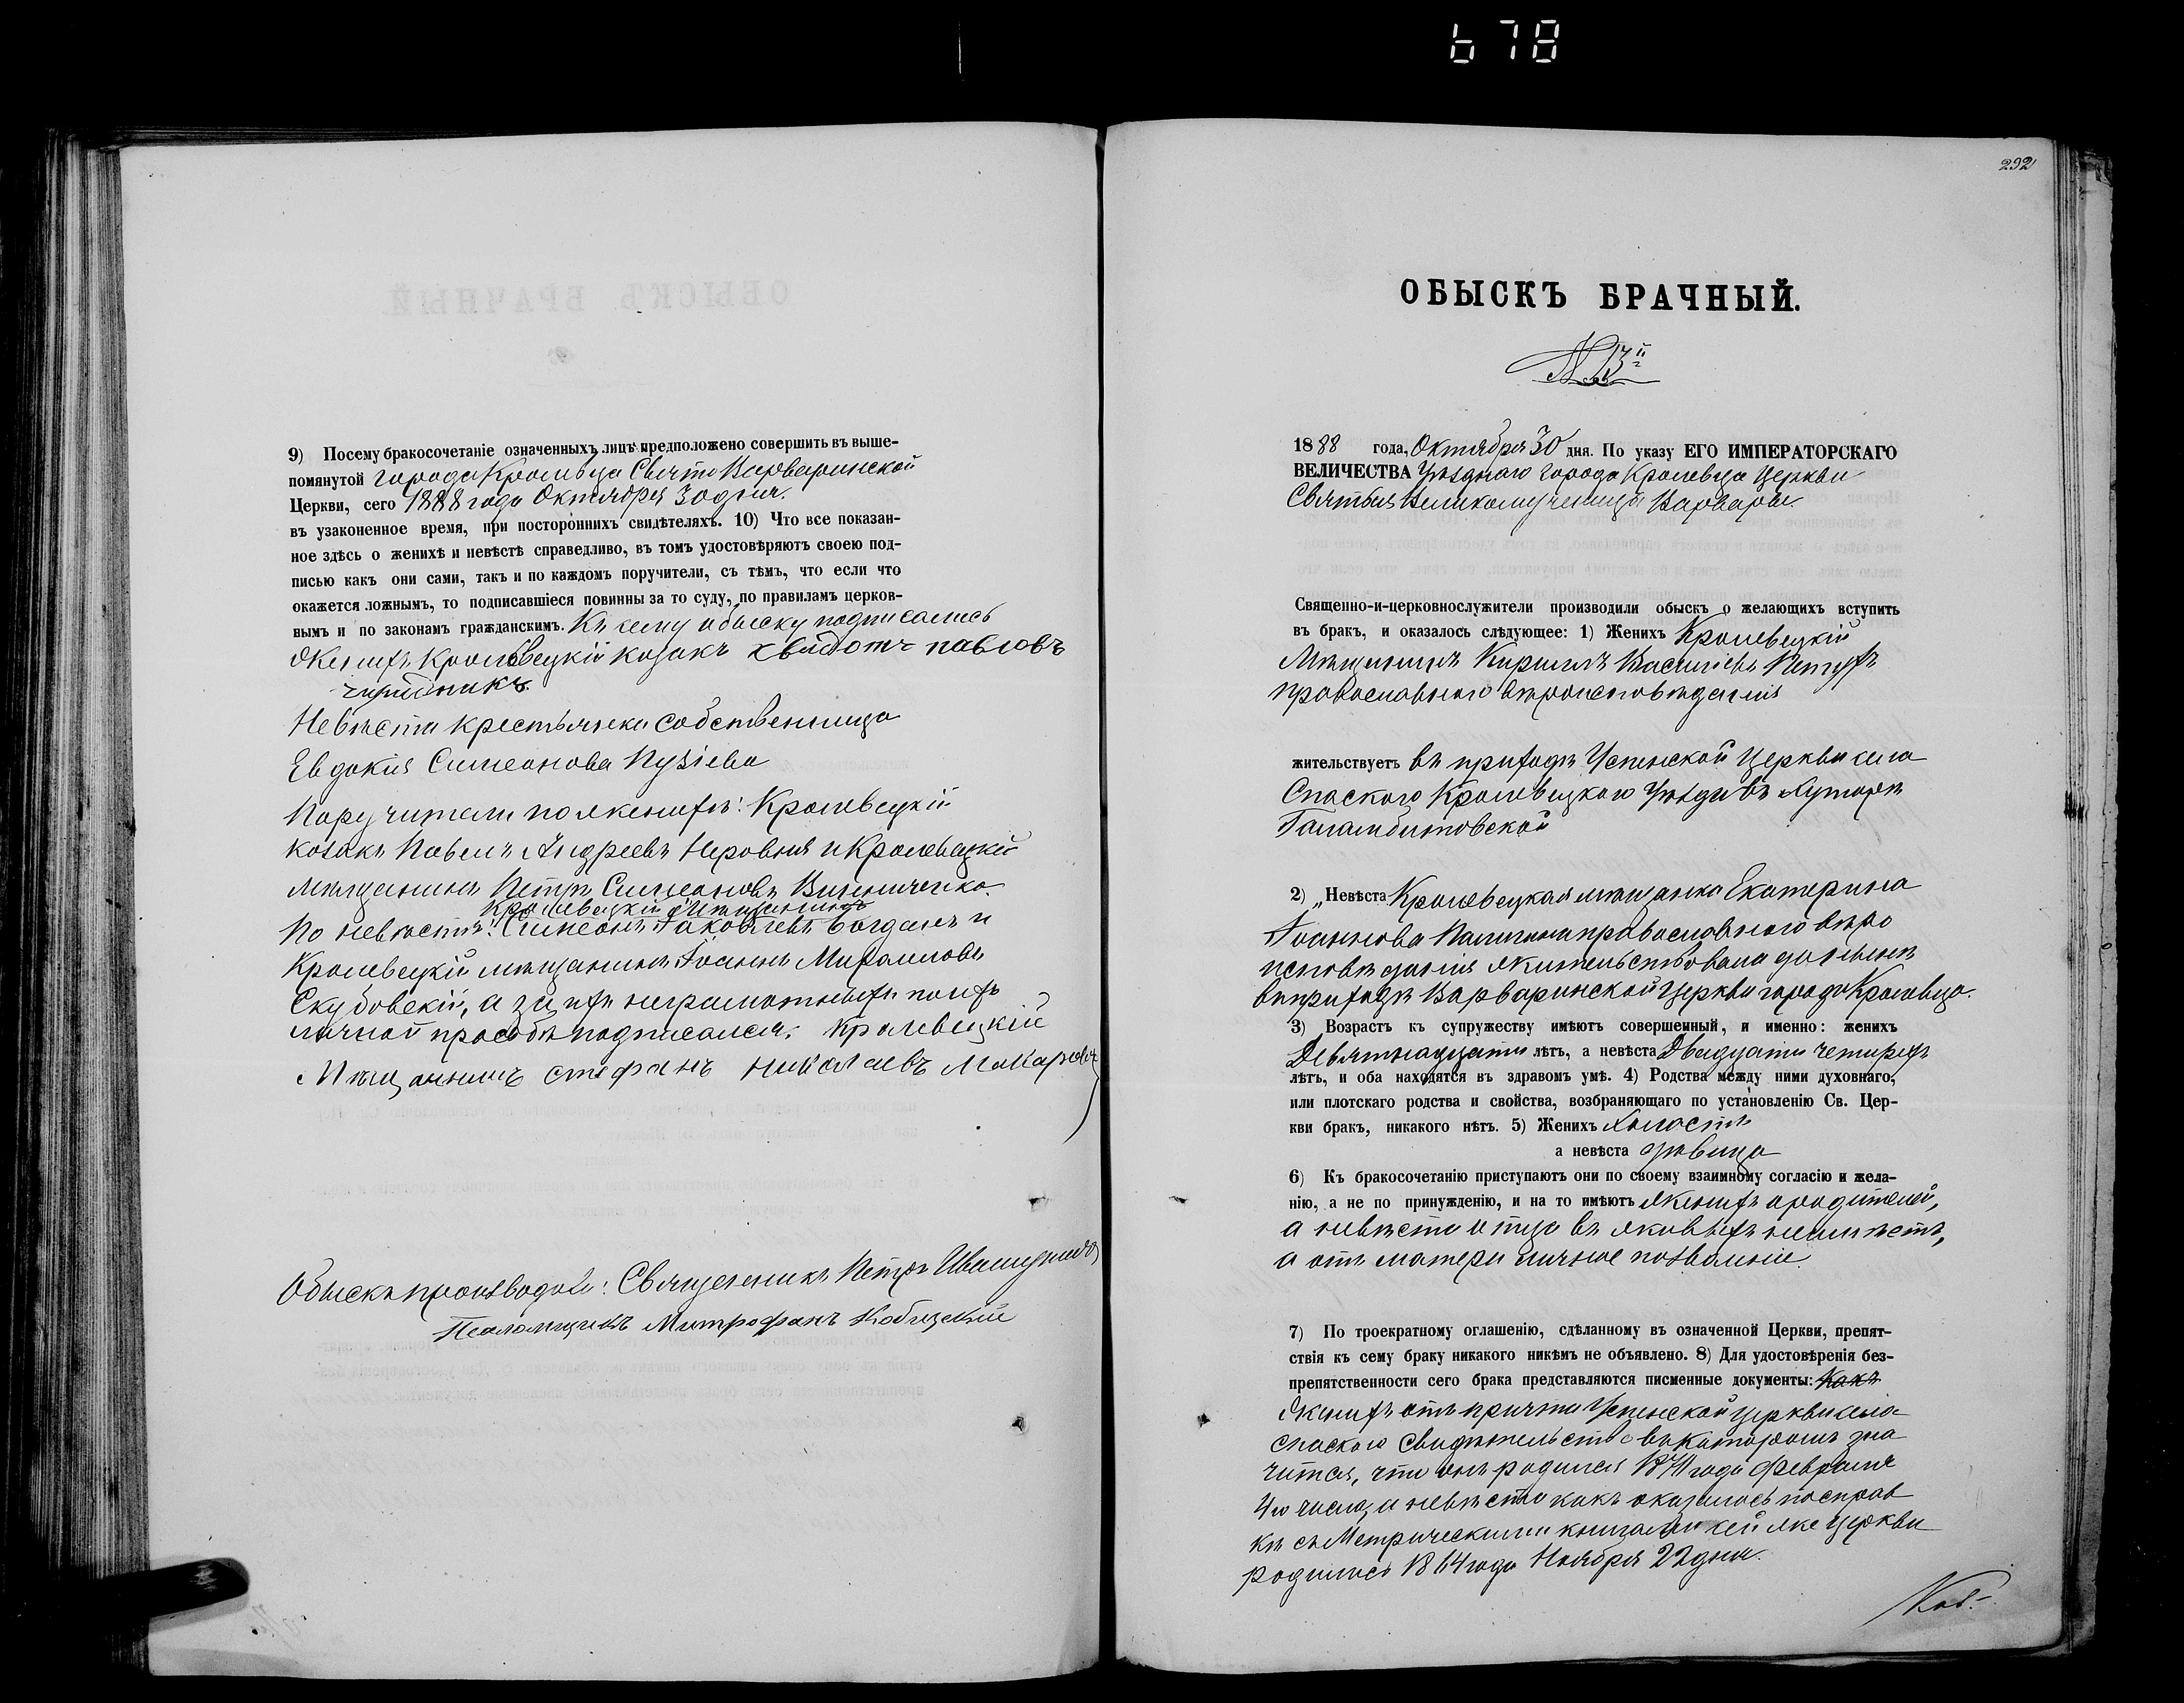 678
9) Посему бракосочетаніе означенныхъ лицъ предположено совершить въ выше-
помянутой города Кролевца Свято Варваринской
Церкви, сего 1888 года Октября 30 дня.
въ узаконенное время, при постороннихъ свидѣтеляхъ. 10) Что все показан-
ное здѣсь о женихѣ и невѣстѣ справедливо, въ томъ удостовѣряютъ своею под-
писью какъ они сами, такъ и по каждомъ поручители, съ тѣмъ, что если что
окажется ложнымъ, то подписавшіеся повинны за то суду, по правиламъ церков-
нымъ и по законамъ гражданскимъ. Къ сему обыску подписались
Женихъ Кролевецкій козакъ павловъ
Невѣста крестьянка собственница
Евдокія Симеонова Пузіева
Поручители по женихѣ: Кролевецкій
козакъ Павелъ Андреевъ Неровня и Кролевецкій
мѣщанинъ Петръ Симеоновъ Винниченко.
Кролевецкій мѣщанинъ
По невѣстѣ: Симеонъ Іаковлевъ Богданъ и
Кролевецкій мѣщанинъ Іоаннъ Михаиловъ
Скубовскій, а за ихъ неграмотныхъ по ихъ
личной просьбѣ подписался: Кролевецкій
Мѣщанинъ стефанъ николаевъ Макаровъ
Обыскъ производили: Священникъ Петръ
Псаломщикъ Митрофанъ Кобицскій
292
ОБЫСКЪ БРАЧНЫЙ.
№ 13й
1888 года, Октября 30 дня. По указу ЕГО ИМПЕРАТОРСКАГО
ВЕЛИЧЕСТВА Уѣзднаго города Кролевца Церкви
Святыя Великомученицы Варвары.
Священно-и-церковнослужители производили обыскъ о желающихъ вступить
въ бракъ, и оказалось слѣдующее: 1) Женихъ Кролевецкій
Мѣщанинъ Кириллъ Василіевъ Петухъ
православнаго вѣроисповѣданія
жительствуетъ въ приходѣ Успенской Церкви села
Спаского Кролевецкого Уѣзда въ хуторѣ
2) „Невѣста Кролевецкая мѣщанка Екатерина
Іоаннова православного вѣро
исповѣданія жительствовала донынѣ
въ приходѣ Варваринской Церкви города Кролевца.
3) Возрастъ къ супружеству имѣютъ совершенный, и именно: женихъ
Девятнадцати лѣтъ, а невѣста Двадцати четырехъ
лѣтъ, и оба находятся въ здравомъ умѣ. 4) Родства между ними духовнаго,
или плотскаго родства и свойства, возбраняющаго по установленію Св. Цер-
кви бракъ, никакого нѣтъ. 5) Женихъ Холостъ
а невѣста дѣвица
6) Къ бракосочетанію приступаютъ они по своему взаимному согласію и жела-
нію, а не по принужденію, и на то имѣютъ женихъ родителей,
а невѣста отца въ живыхъ неимѣетъ,
а отъ матери личное позволеніе.
7) По троекратному оглашенію, сдѣланному въ означенной Церкви, препят-
ствія къ сему браку никакого никѣмъ не объявлено. 8) Для удостовѣренія без-
препятственности сего брака представляются писменные документы: Какъ
Женихъ отъ причта Успенской церкви села
Спаского свидѣтельство въ которомъ зна
чится, что онъ родился года Февраля
4го числа, а невѣста какъ оказалось по справ
кѣ съ Метрическими книгами сей же церкви
родилась 1864 года Ноября 22 дня.
Коб.-